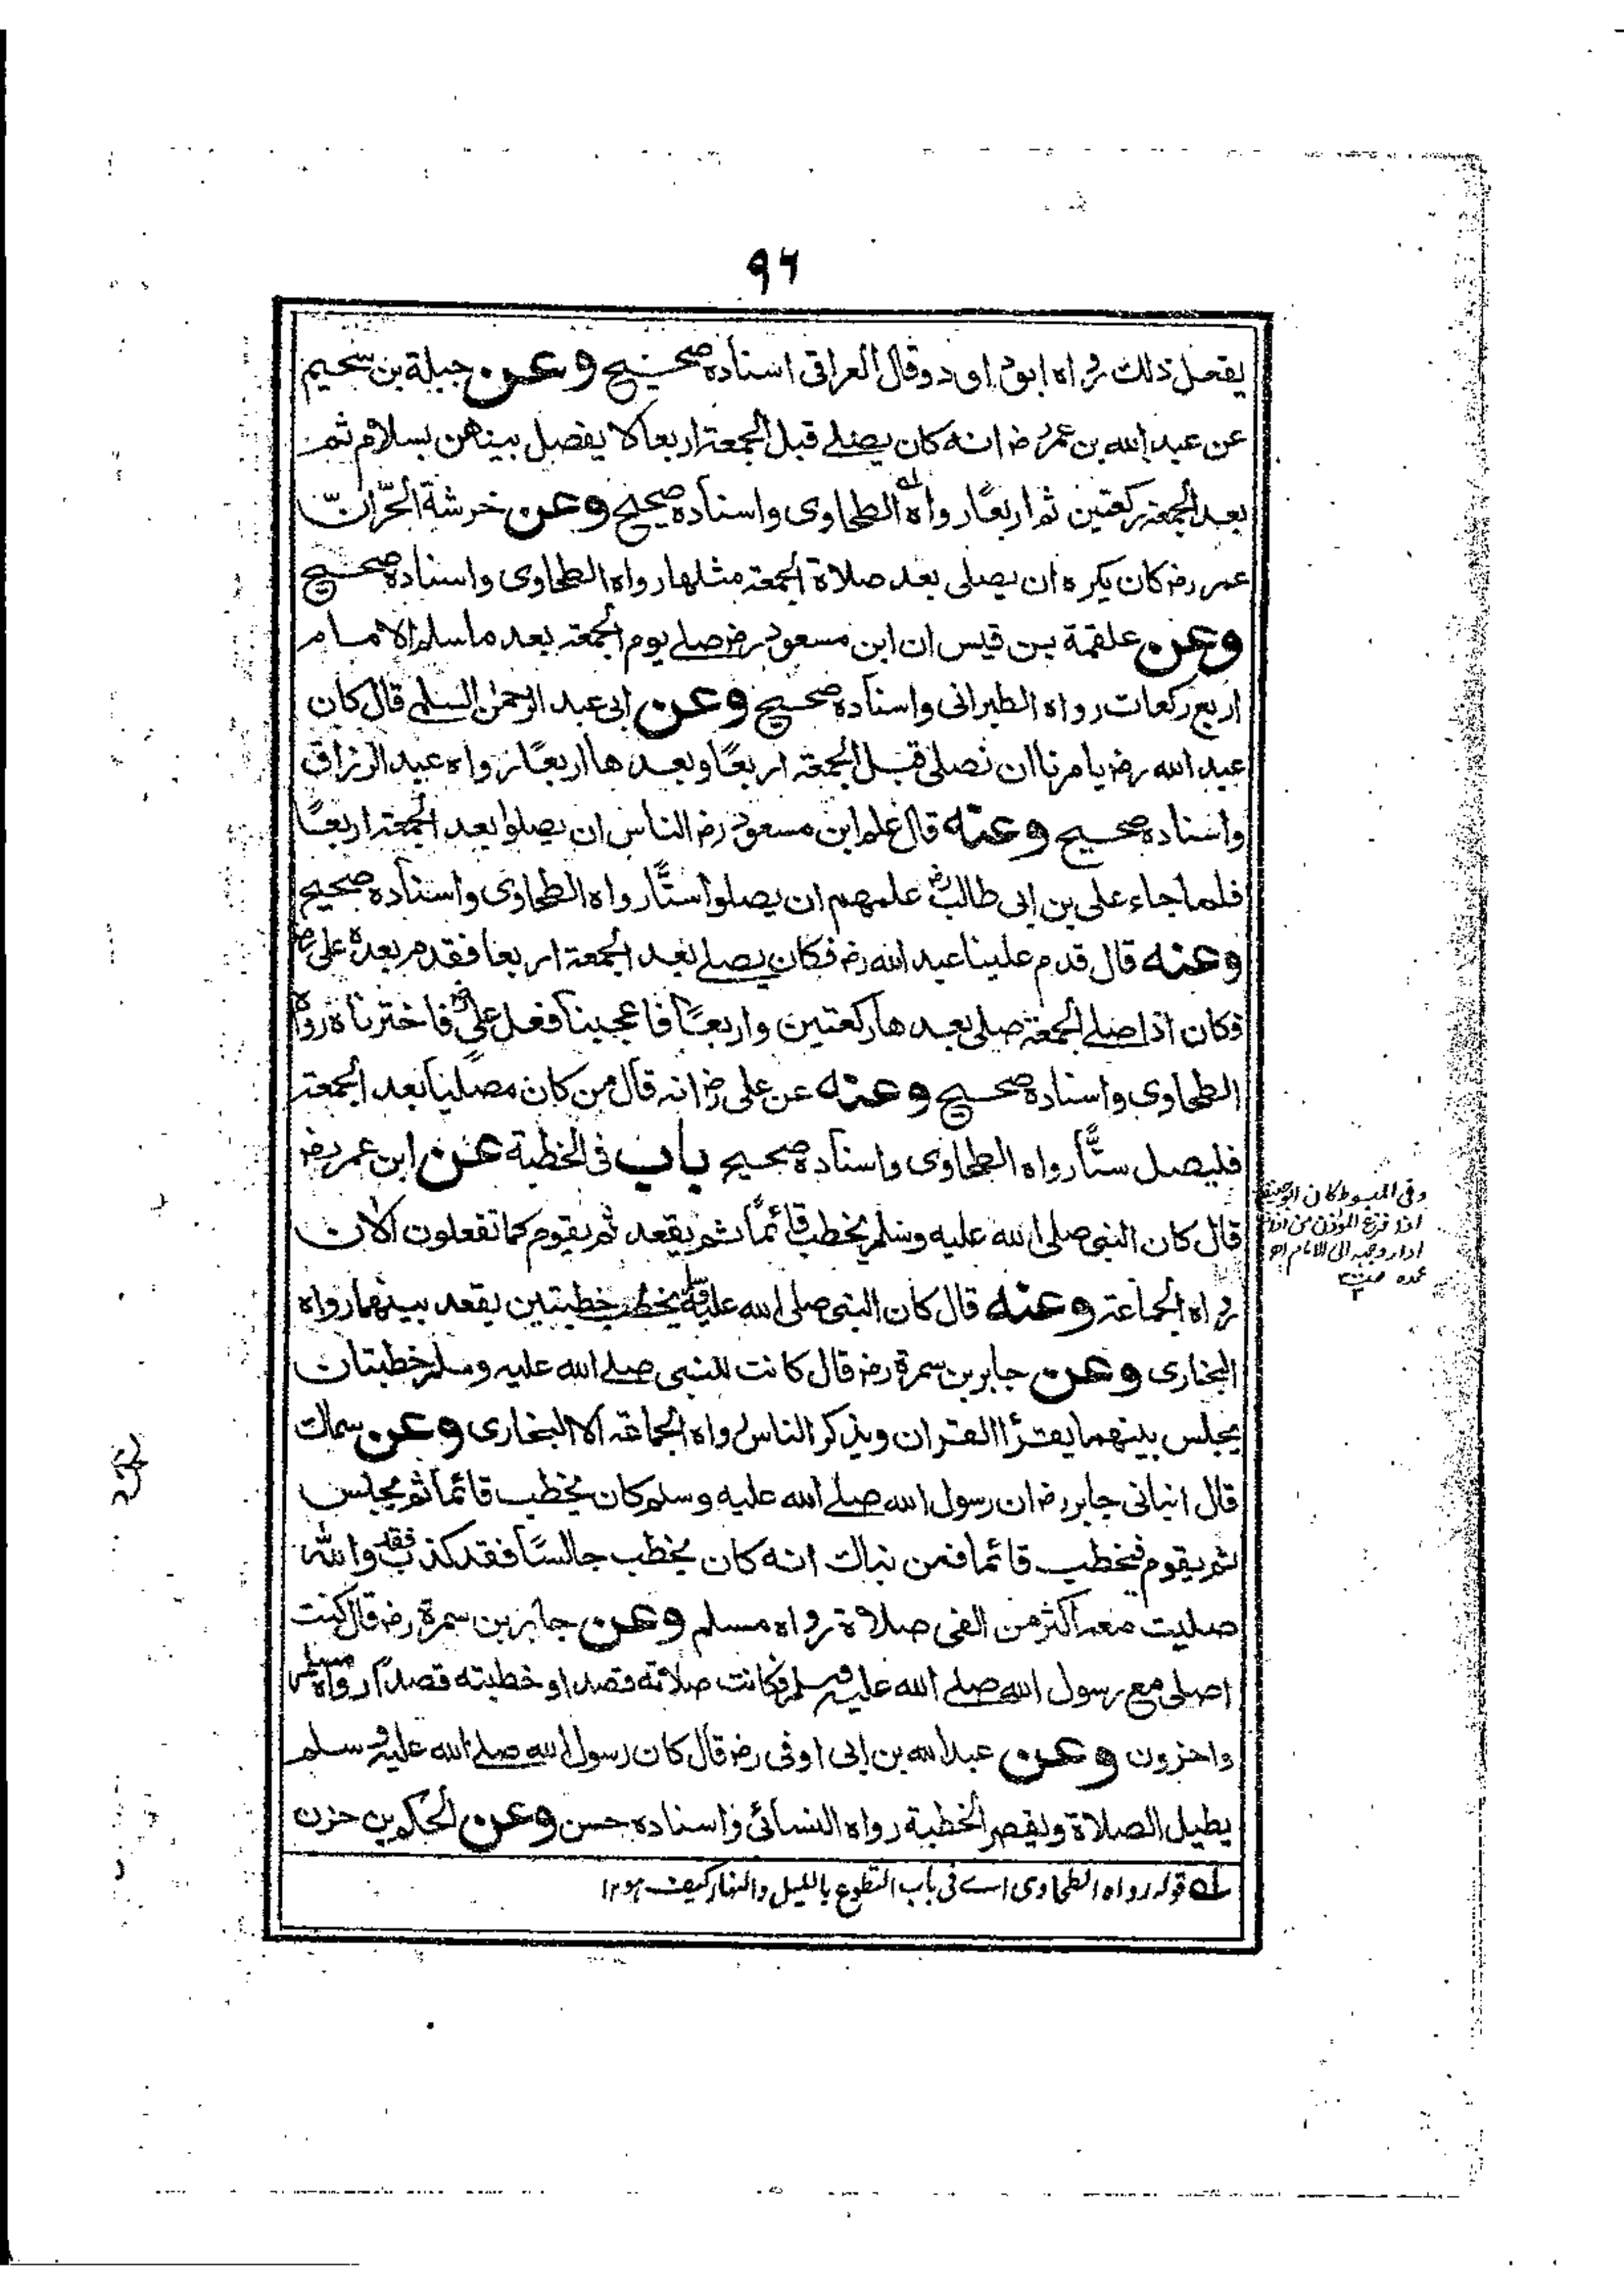 ٩٦
يفعل ذلك رواه ابو داود وقال العراقى اسناده صحيح وعن جبلة بن سحيم
عن عبد الله بن عمر رض انه كان يصلے قبل الجمعة اربعا لا يفصل بينهن بسلام ثم
بعد الجمعة ركعتين ثم اربعًا رواه الطحاوى واسناده صحيح وعن خرشة الحرّ انّ
عمر رض كان يكره ان يصلى بعد صلاة الجمعة مثلها رواه الطحاوى واسناده صحيح
وعن علقمة بن قيس ان ابن مسعود رض صلے يوم الجمعة بعد ما سلم الامام
اربع ركعات رواه الطبرانى واسناده صحيح وعن ابى عبد الرحمٰن السلمے قال كان
عبد الله رض يامرنا ان نصلى قبل الجمعة اربعًا وبعدها اربعًا رواه عبد الرزاق
واسناده صحيح وعنه قال علم ابن مسعود رض الناس ان يصلوا بعد الجمعة اربعًا
فلما جاء على بن ابى طالب رض علمهم ان يصلوا ستًّا رواه الطحاوى واسناده صحيح
وعنه قال قدم علينا عبد الله رض فكان يصلے بعد الجمعة اربعا فقدم بعده على رض
فكان اذا صلے الجمعة صلى بعدها ركعتين واربعًا فاعجبنا فعل على رض فاخترناه رواه
الطحاوى واسناده صحيح وعنه عن على رض انه قال من كان مصليًا بعد الجمعة
فليصل ستًّا رواه الطحاوى واسناده صحيح باب فى الخطبة عن ابن عمر رض
قال كان النبى صلى الله عليه وسلم يخطب قائمًا ثم يقعد ثم يقوم كما تفعلون الأن
رواه الجماعة وعنه قال كان النبى صلى الله عليه وسلم يخطب خطبتين يقعد بينهما رواه
البخارى وعن جابر بن سمرة رض قال كانت للنبى صلے الله عليه وسلم خطبتان
يجلس بينهما يقرأ القران ويذكر الناس رواه الجماعة الا البخارى وعن سماك
قال انبانى جابر رض ان رسول الله صلے الله عليه وسلم كان يخطب قائما ثم يجلس
ثم يقوم فيخطب قائما فمن نباك انه كان يخطب جالسًا فقد كذب فقد والله
صليت معه اكثر من الفى صلاة رواه مسلم وعن جابر بن سمرة رض قال كنت
اصلى مع رسول الله صلے الله عليه وسلم فكانت صلاته قصدا وخطبته قصدًا رواه مسلم
واخرون وعن عبد الله بن ابى اوفى رض قال كان رسول الله صلے الله عليه وسلم
يطيل الصلاة ويقصر الخطبة رواه النسائى واسناده حسن وعن الحكم بن حزن
لـه قوله رواه الطحاوى اے فى باب التطوع بالليل والنهار كيف هو ١٢
وفى المبسوط كان ابو حنيفة
اذا فرغ المؤذن من اذانه
ادار وجهه الى الامام اھ